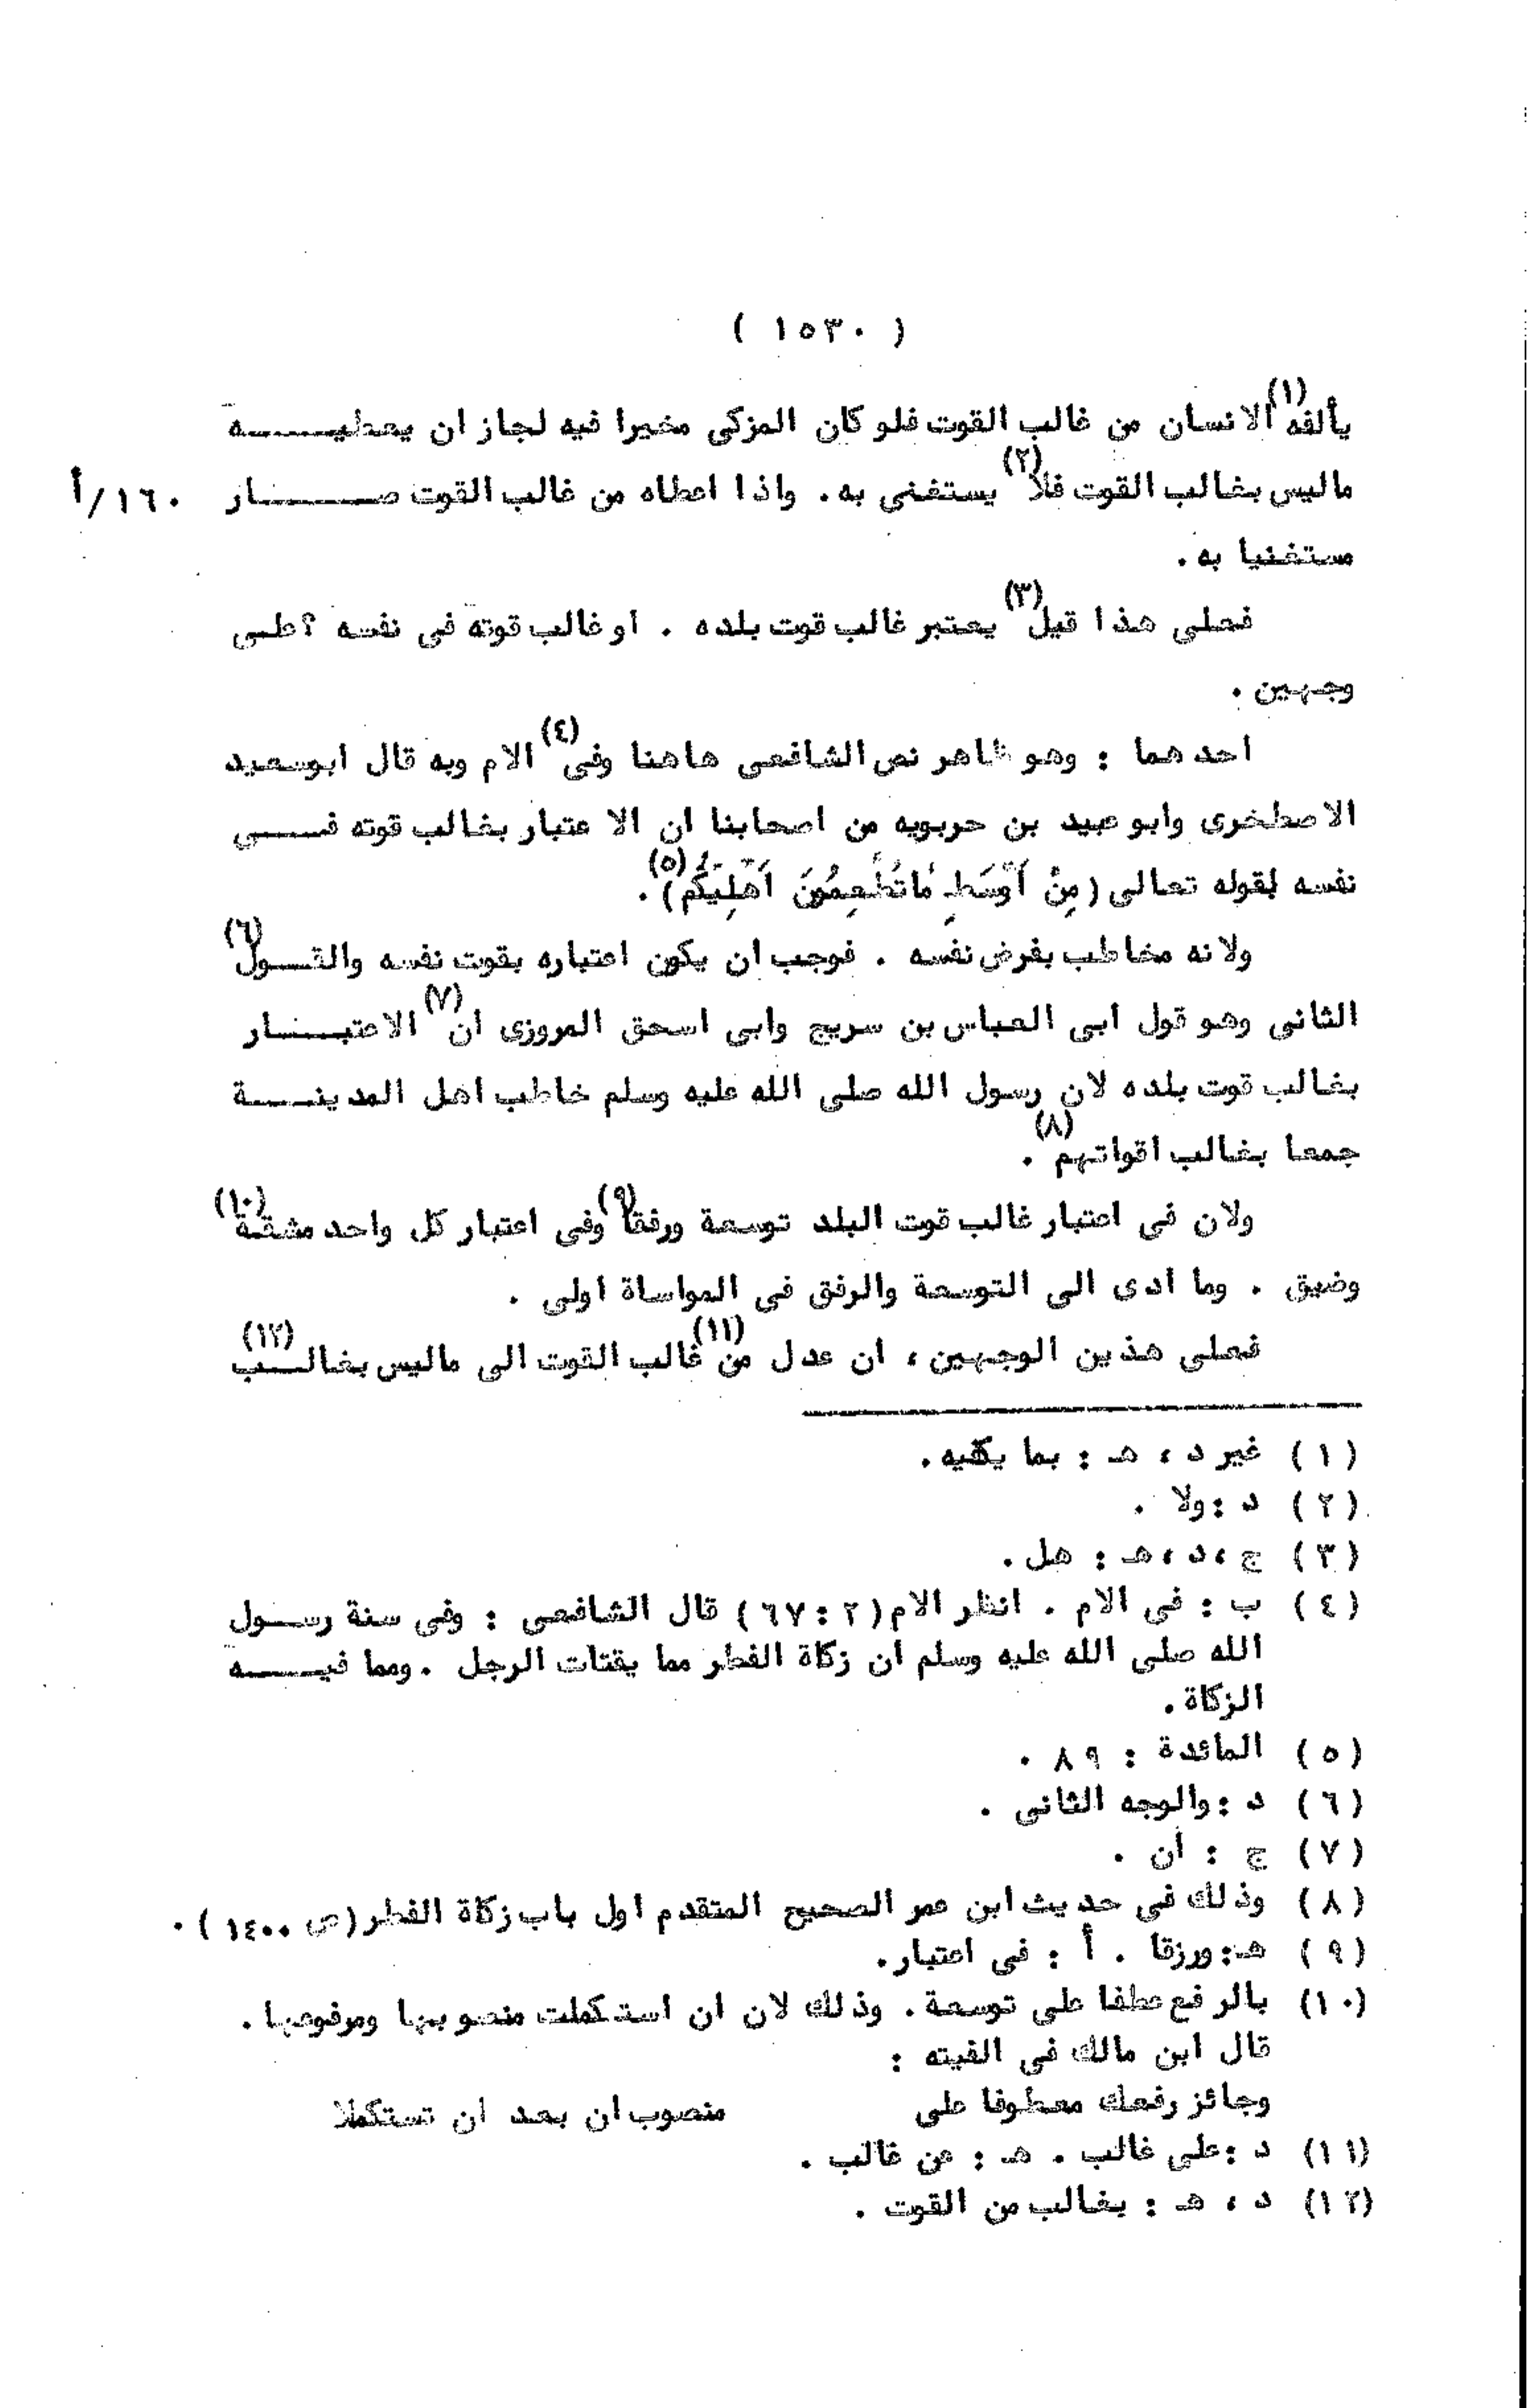 ( ١٥٣٠ )
يألفه(١) الانسان من غالب القوت فلو كان المزكى مخيرا فيه لجاز ان يعطيـــــه
ماليس بغالب القوت فلا(٢) يستغنى به . واذا اعطاه من غالب القوت صـــــار ١٦٠/أ
مستغنيا به .
فعلى هذا قيل(٣) يعتبر غالب قوت بلده . او غالب قوته فى نفسه ؟ على
وجهين .
احدهما : وهو ظاهر نص الشافعى هاهنا وفى(٤) الام وبه قال ابوسعيد
الاصطخرى وابو عبيد بن حربويه من اصحابنا ان الاعتبار بغالب قوته فــــى
نفسه لقوله تعالى ( مِنْ أَوْسَطِ مَاتُطْعِمُونَ أَهْلِيكُم )(٥) .
ولانه مخاطب بفرض نفسه . فوجب ان يكون اعتباره بقوت نفسه والقـــول(٦)
الثانى وهو قول ابى العباس بن سريج وابى اسحق المروزى ان(٧) الاعتبـــار
بغالب قوت بلده لان رسول الله صلى الله عليه وسلم خاطب اهل المدينــــة
جمعا بغالب اقواتهم(٨) .
ولان فى اعتبار غالب قوت البلد توسعة ورفقا(٩) وفى اعتبار كل واحد مشقة(١٠)
وضيق . وما ادى الى التوسعة والرفق فى المواساة اولى .
فعلى هذين الوجهين ، ان عدل من(١١) غالب القوت الى ماليس بغالـــب(١٢)
(١) غير د ، هـ : بما يكفيه .
(٢) د : ولا .
(٣) ج ، د ، هـ : هل .
(٤) ب : فى الام . انظر الام (٢ : ٦٧) قال الشافعى : وفى سنة رســول
الله صلى الله عليه وسلم ان زكاة الفطر مما يقتات الرجل . ومما فيــــه
الزكاة .
(٥) المائدة : ٨٩ .
(٦) د : والوجه الثانى .
(٧) ج : أن .
(٨) وذلك فى حديث ابن عمر الصحيح المتقدم اول باب زكاة الفطر (ص ١٤٠٠) .
(٩) هـ : ورزقا . أ : فى اعتبار .
(١٠) بالرفع عطفا على توسعة . وذلك لان ان استكملت منصوبها ومرفوعها .
قال ابن مالك فى الفيته :
وجائز رفعك معطوفا على منصوب ان بعد ان تستكملا
(١١) د : على غالب . هـ : عن غالب .
(١٢) د ، هـ : بغالب من القوت .